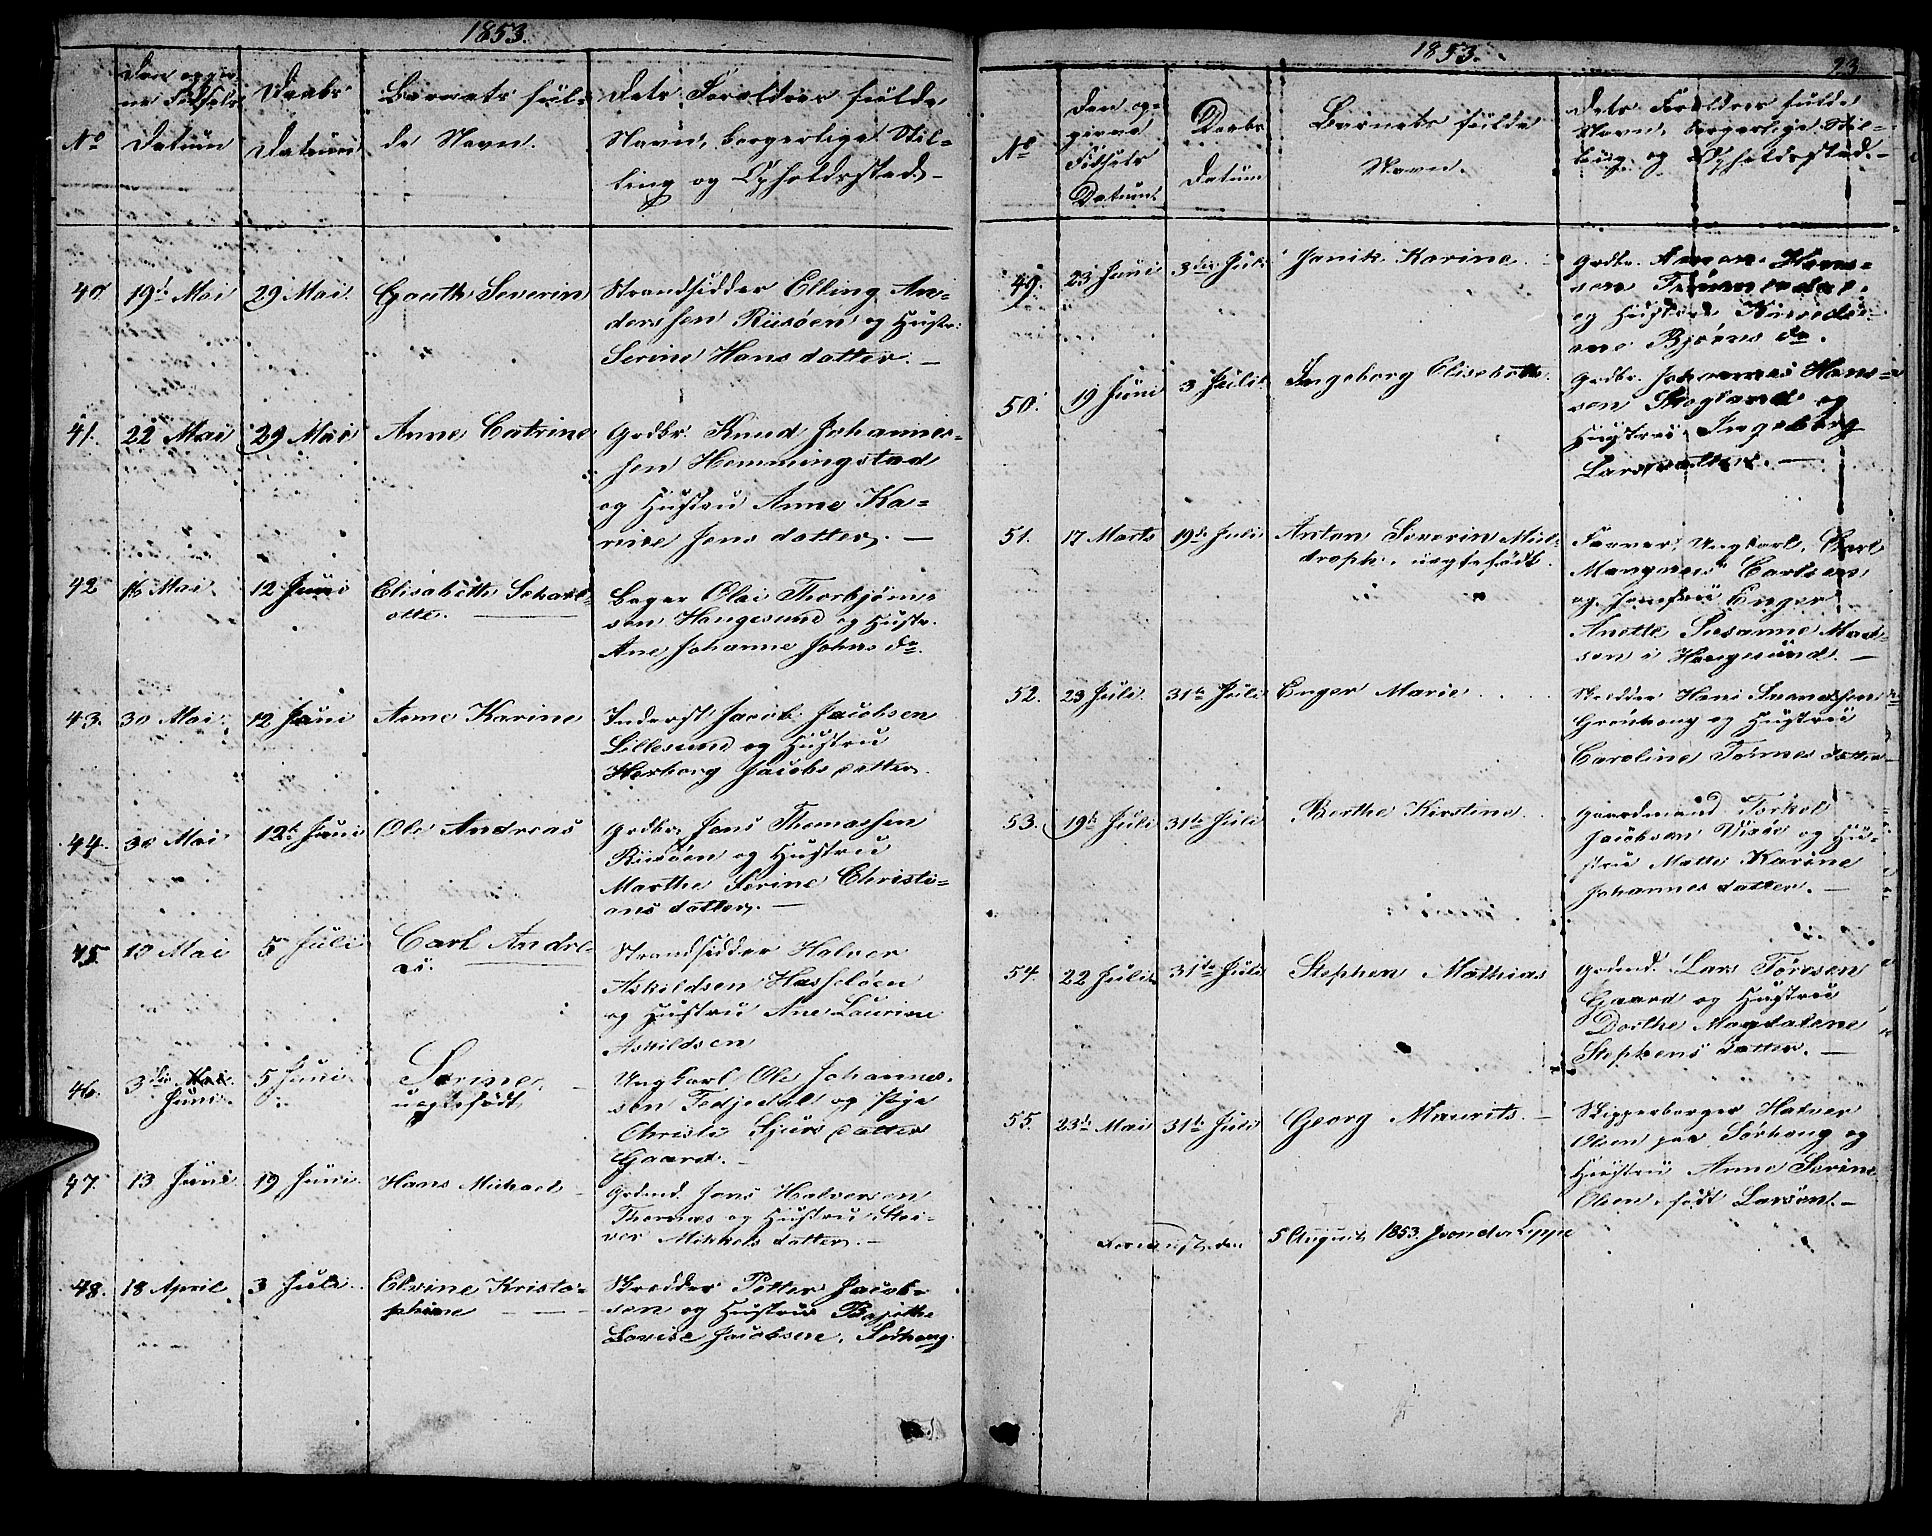 1853.
Den opgiv-
ne Fødsels
Daabs
Barnets ful-
Dets Foreldres fulde
No
Datum
Datum
de Navn.
Navn, borgerlige Stil-
ling og Opholdssted
40
19de Mai
29 Mai
Gaeth Severin
Strandsidder Elling An-
derssen Riisøen og Hustr.
Serine Hansdatter. —
41.
22 Mai
29 Mai
Anne Catrine
Grdbr. Knud Johannes-
sen Hemmingstad
og Hustru Anne Ka-
rine Jensdatter. —
42
16 Mai
12 Juni
Elisabeth Scharl-
otte.
Bager Olai Thorbjørn-
sen Haugesund og Hustr.
Ane Johanne Johns dr.
43.
30 Mai
12 Juni
Anne Karine
Inderst Jacob Jacobsen
Lillesund og Hustru
Herborg Jacobsdatter.
44.
30 Mai
12te Juni
Ole Andreas
Grdbr Jens Thomassen
Riisøen og Hustru
Marthe Serine Christi-
ansdatter. —
45
13 Mai
5 Juli
Carl Andre-
as.
Strandsidder Halver
Askildsen Hasseløen
og Hustru Ane Laurine
Askildsen
46.
3die Mai
Juni
5 Juni
Serine
uegtefødt
Ungkarl Ole Johannes-
sen Fedjedal og Pige
Christi Sjursdatter
Gaard. —
47.
13 Juni
19 Juni
Hans Michael
Grdmd. Jens Halversen
Thornæs og Hustru Stai-
ver Mikkelsdatter. —
48.
18 April
3 Juli
Elsine Kristo-
phine
Skredder Petter Jacob-
sen og Hustrue
Lovise Jacobsen, Sørhaug.
1853.
23
Den op-
givne
Fødsels
Datum
No
Daabs
Datum
Barnets fulde
Navn.
Dets Foreldres fulde
Navn, borgerlige Stil-
ling og Opholdssted. —
49.
23 Juni
3die Juli
Janik Karine
Grdbr. Hans-
son
og Hustrue
ane Bjørns dr.
50.
19 Juni
3 Juli
Ingeborg Elisebeth
Grdbr. Johannes Hans-
sen Skogland og
Hustrue Ingeborg
Larsdatter. —
51.
17 Marts
19de Juli
Anton Severin Miel-
droph. uegtefødt.
Farver, Ungkarl, Carl
Mangnus Carlsen
og Jomfru Enger
Anette Susanne Mad-
sen i Haugesund. —
52.
23 Juli
31te Juli
Enger Marie
Skredder Hans Svendsen
Grønhaug og Hustrue
Caroline Tønnesdatter
53.
19de Juli
31te Juli
Berthe Kirstine
Gaardmand Torkel
Jacobsen Vixe og Hu-
stru Mette Karine
Johannesdatter. —
54.
22 Juli
31te Juli
Stephen Mathias
Grdmd. Lars Tøresen
Gaard og Hustrue
Dorthe Magdalene
Stephensdatter. —
55.
23de Mai
31te Juli
Georg Maurits. —
Skipperborger Halver
Olsen paa Sørhaug og
Hustru Anne Serine
Olsen, født Larsen. —
den 5 August 1853.